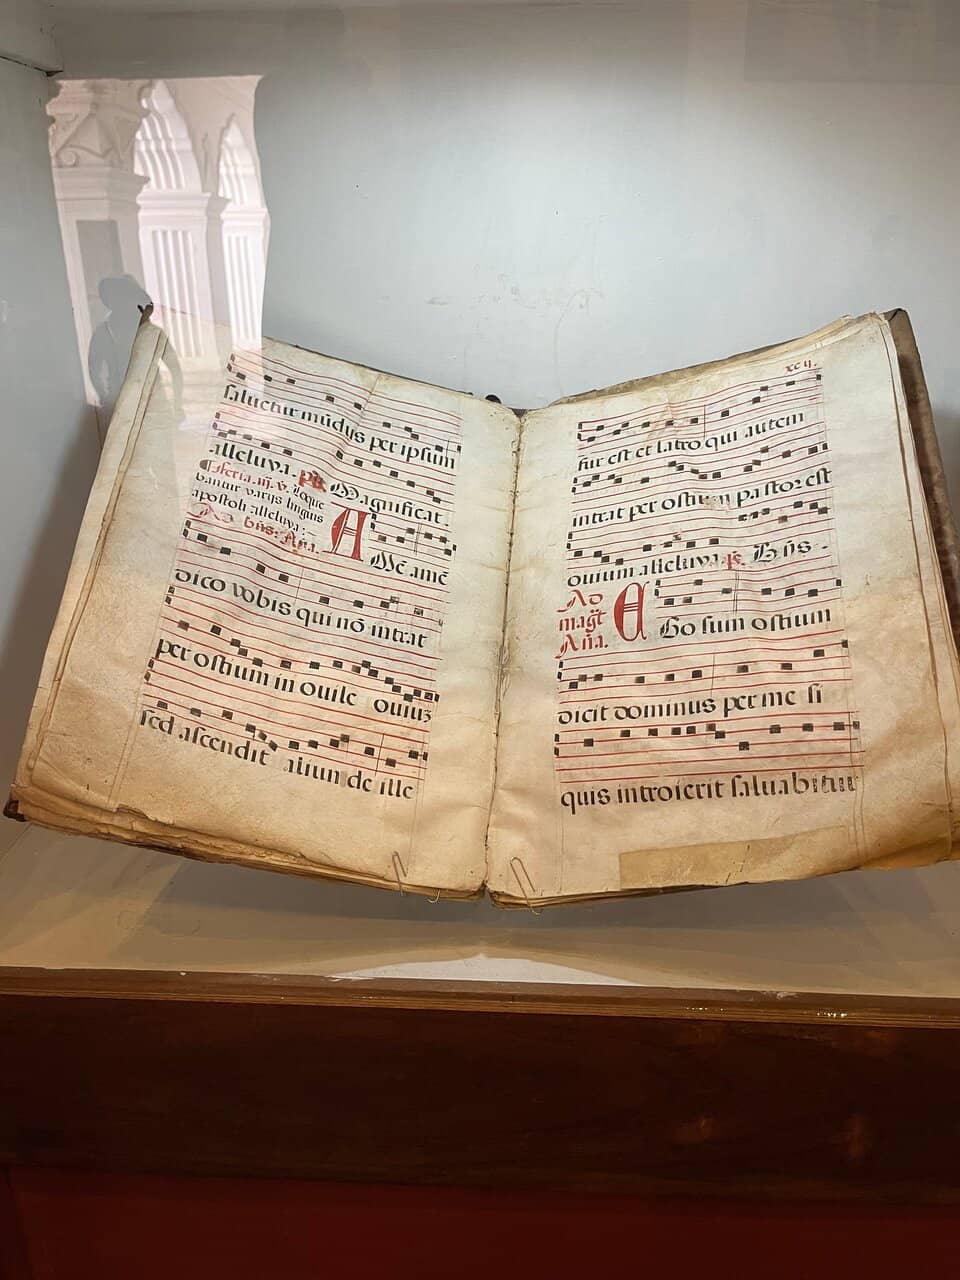 saluetur mūdus per ipsum
alleluya. ps. Magnificat.
Feria. iij. V. Loque
bantur varijs linguis
apostoli alleluya:
Ad bñs. Aña.
A Mē amē
dico vobis qui nō intrat
per ostium in ouile ouiuȝ
sed ascendit aliun de ille
xcij.
fur est et latro qui autem
intrat per ostium pastor est
ouium alleluya. ps. Bñs.
Ad
magt̄
Aña.
E Go sum ostium
dicit dominus per me si
quis introierit saluabitur